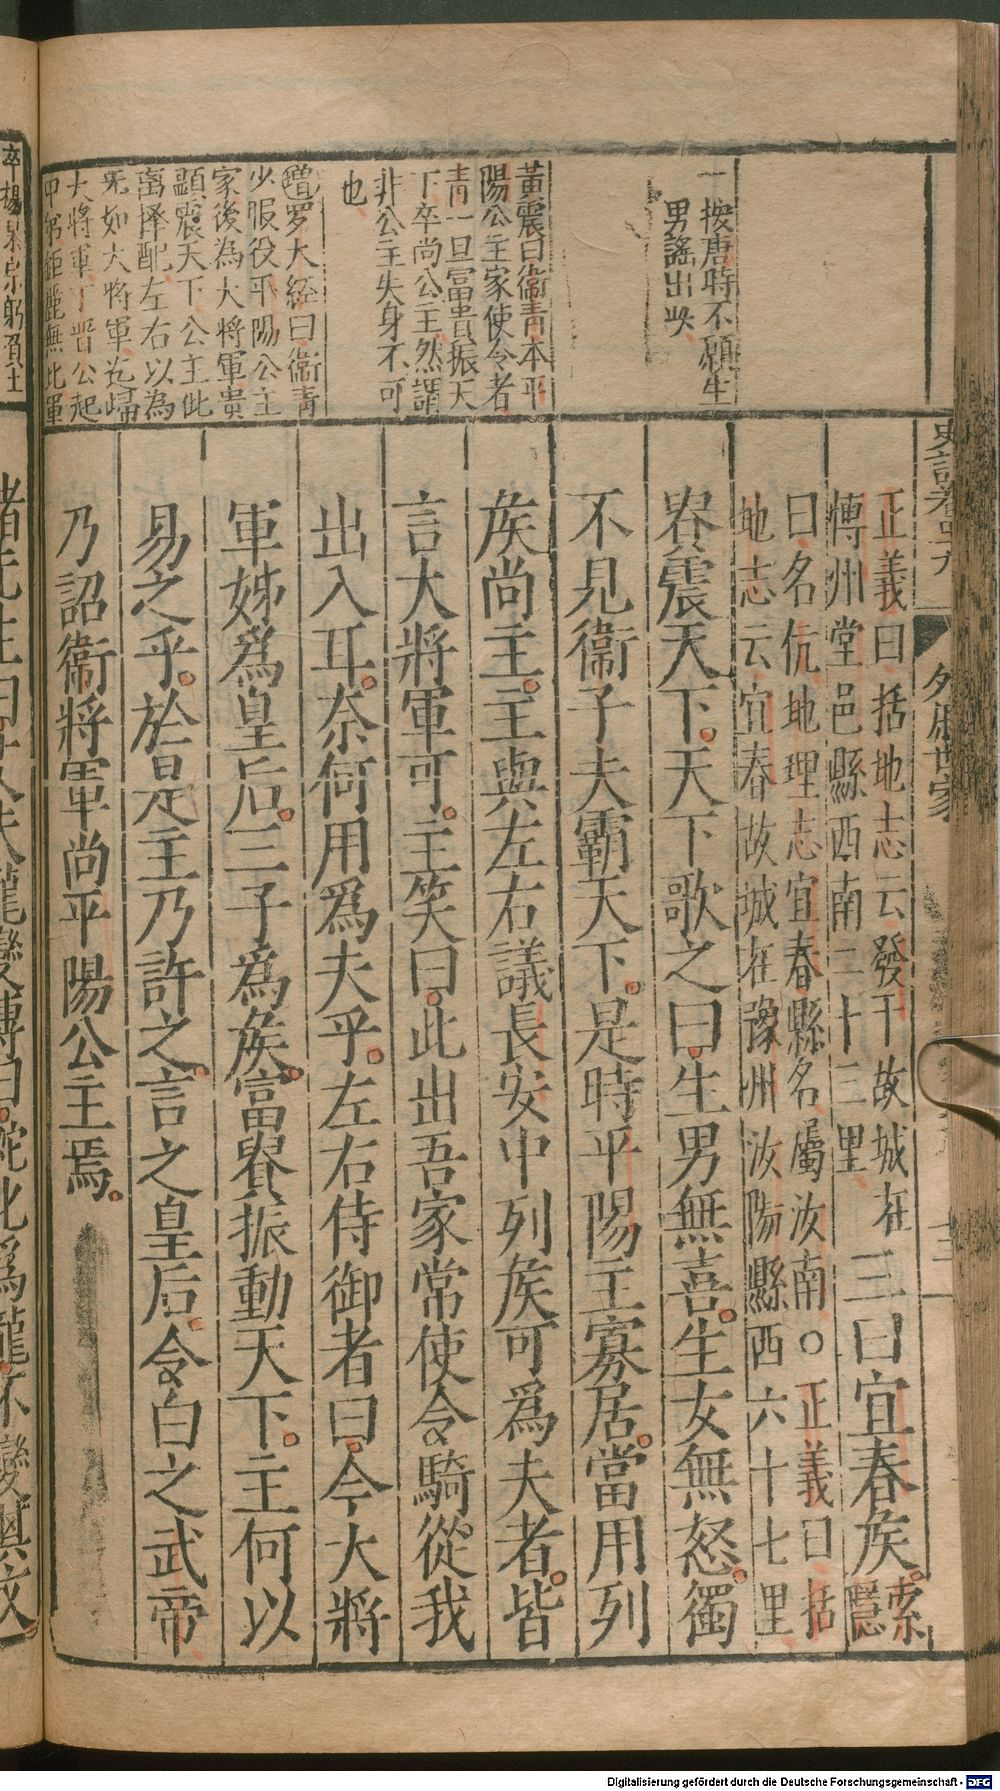 史記卷四十九
外戚世家
十三
一按唐時不願生
男謠出此
黃震曰衞青本平
陽公主家使令者
青一旦富貴振天
下卒尚公主然謂
非公主失身不可
也
羅大經曰衞青
少服役平陽公主
家後為大將軍貴
顯震天下公主仳
離擇配左右以為
無如大將軍迄歸
大將軍丁晋公起
甲第鉅麗無比軍
正義曰括地志云發干故城在
愽州堂邑縣西南二十三里
三曰宜春侯
索
隱
曰名伉地理志宜春縣名屬汝南○正義曰括
地志云宜春故城在豫州汝陽縣西六十七里
貴震天下天下歌之曰生男無喜生女無怒獨
不見衞子夫霸天下是時平陽主寡居當用列
侯尚主主與左右議長安中列侯可爲夫者皆
言大將軍可主笑曰此出吾家常使令騎從我
出入耳奈何用爲夫乎左右侍御者曰今大將
軍姊爲皇后三子爲侯富貴振動天下主何以
易之乎於是主乃許之言之皇后令白之武帝
乃詔衞將軍尚平陽公主焉
Digitalisierung gefördert durch die Deutsche Forschungsgemeinschaft - DFG